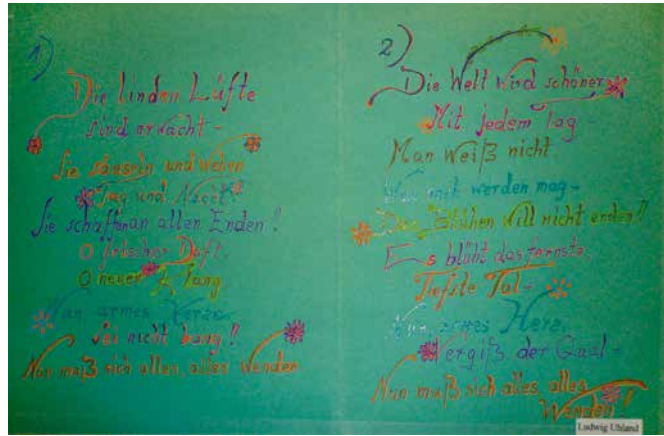 1)
Die linden Lüfte
sind erwacht –
Sie säuseln und wehen
Tag und Nacht
Sie schaffen an allen Enden!
O frischer Duft,
O neuer Klang
Nun armes Herze
sei nicht bang!!
Nun muß sich alles, alles Wenden
2)
Die Welt wird schöner
Mit jedem Tag –
Man Weiß nicht
Was mit werden mag –
Das Blühen will nicht enden!!
Es blüht das fernste,
Tiefste Tal –
Nun armes Herze
Vergiß der Qual –
Nun muß sich alles, alles
Wenden!
Ludwig Uhland